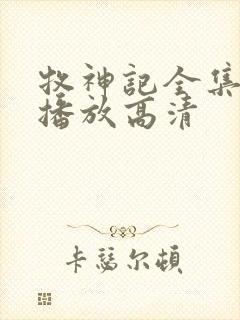 牧神记全集
播放高清
卡瑟尔顿